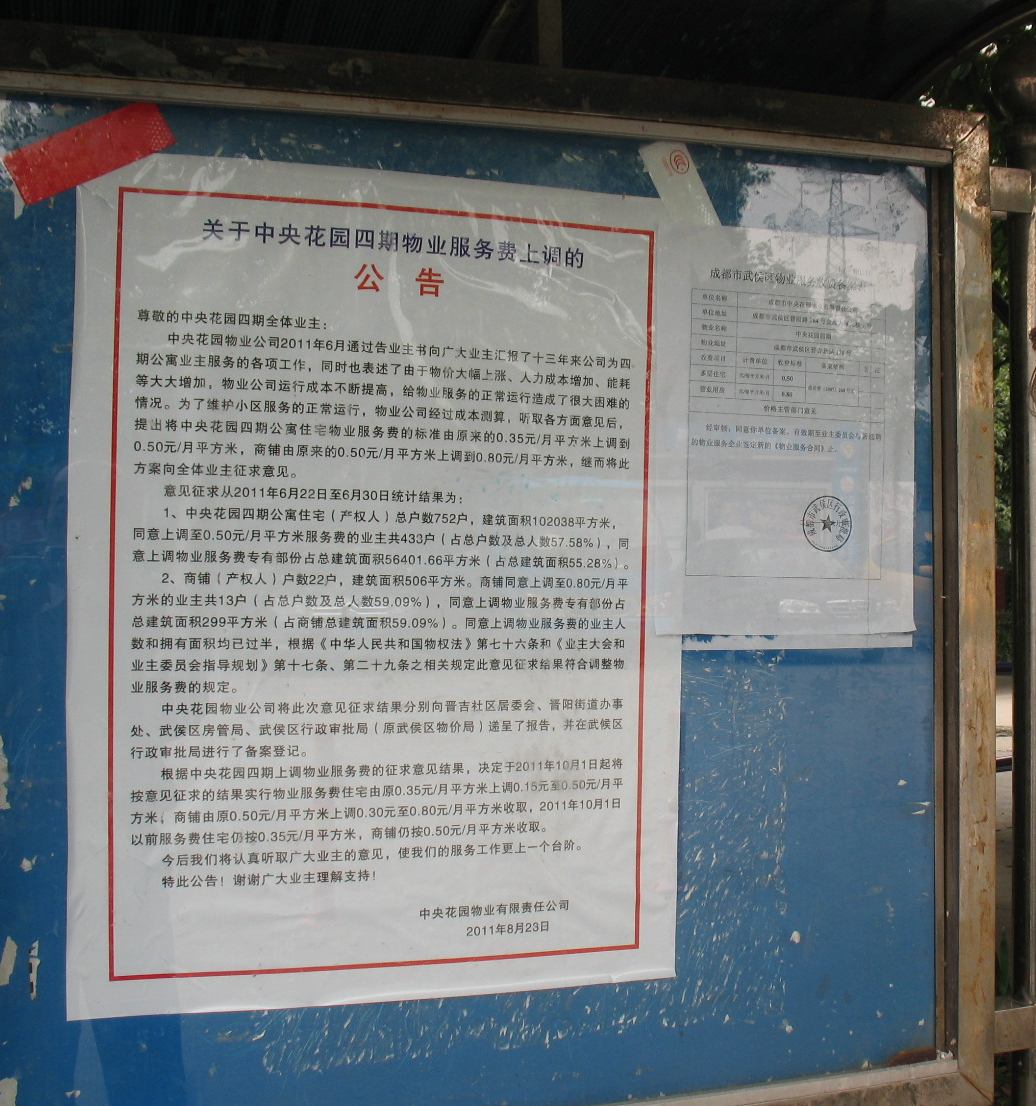 关于中央花园四期物业服务费上调的
公 告
尊敬的中央花园四期全体业主：
中央花园物业公司2011年6月通过告业主书向广大业主汇报了十三年来公司为四
期公寓业主服务的各项工作，同时也表述了由于物价大幅上涨、人力成本增加、能耗
等大大增加，物业公司运行成本不断提高，给物业服务的正常运行造成了很大困难的
情况。为了维护小区服务的正常运行，物业公司经过成本测算，听取各方面意见后，
提出将中央花园四期公寓住宅物业服务费的标准由原来的0.35元/月平方米上调到
0.50元/月平方米，商铺由原来的0.50元/月平方米上调到0.80元/月平方米，继而将此
方案向全体业主征求意见。
意见征求从2011年6月22日至6月30日统计结果为：
1、中央花园四期公寓住宅（产权人）总户数752户，建筑面积102038平方米，
同意上调至0.50元/月平方米服务费的业主共433户（占总户数及总人数57.58%），同
意上调物业服务费专有部份占总建筑面积56401.66平方米（占总建筑面积55.28%）。
2、商铺（产权人）户数22户，建筑面积506平方米。商铺同意上调至0.80元/月平
方米的业主共13户（占总户数及总人数59.09%），同意上调物业服务费专有部份占
总建筑面积299平方米（占商铺总建筑面积59.09%）。同意上调物业服务费的业主人
数和拥有面积均已过半，根据《中华人民共和国物权法》第七十六条和《业主大会和
业主委员会指导规划》第十七条、第二十九条之相关规定此意见征求结果符合调整物
业服务费的规定。
中央花园物业公司将此次意见征求结果分别向晋吉社区居委会、晋阳街道办事
处、武侯区房管局、武侯区行政审批局（原武侯区物价局）递呈了报告，并在武候区
行政审批局进行了备案登记。
根据中央花园四期上调物业服务费的征求意见结果，决定于2011年10月1日起将
按意见征求的结果实行物业服务费住宅由原0.35元/月平方米上调0.15元至0.50元/月平
方米，商铺由原0.50元/月平方米上调0.30元至0.80元/月平方米收取，2011年10月1日
以前服务费住宅仍按0.35元/月平方米，商铺仍按0.50元/月平方米收取。
今后我们将认真听取广大业主的意见，使我们的服务工作更上一个台阶。
特此公告！谢谢广大业主理解支持！
中央花园物业有限责任公司
2011年8月23日
成都市武侯区物业服务收费备案
单位名称
单位地址
物业名称 中央花园四期
物业地址
收费项目 计费单位 收费标准 备案依据 备 注
多层住宅 元/每平方米·月 0.50
营业用房 元/每平方米·月 0.80
价格主管部门意见
经审核，同意你单位备案，有效期至业主委员会与新选聘
的物业服务企业签定新的《物业服务合同》止。
成都市武侯区行政审批局